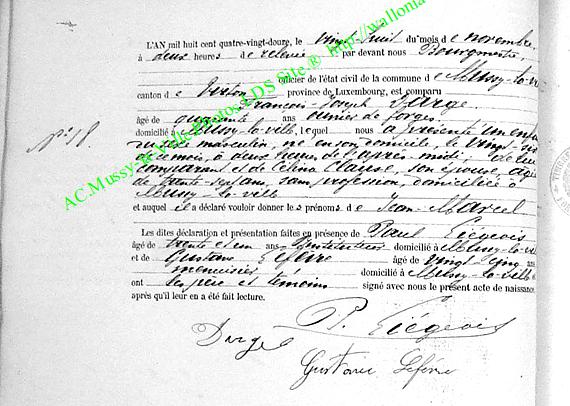 L'AN mil huit cent quatre-vingt-douze, le vingt-huit du mois de novembre
à deux heures de relevée par devant nous Bourgmestre
Officier de l'état civil de la commune de Mussy-la-vi
canton de Virton province de Luxembourg, est comparu
François-Joseph Darge
âgé de quarante ans ouvrier de forges
domicilié à Mussy-la-ville, lequel nous a présenté un enfan
du sexe masculin, né en son domicile, le vingt-
de ce mois, à deux heures de l'après midi, de lui
comparant et de Célina Clause, son épouse, agée
de trente-sept ans, sans profession, domiciliée à
Mussy-la-ville
et auquel il a déclaré vouloir donner les prénoms de Jean-Marcel
Les dites déclaration et présentation faites en présence de Paul Liégeois
âgé de trente et un ans Instituteur domicilié à Mussy-la-vill
et de Gustave Lefèvre âgé de vingt cinq ans
menuisier domicilié à Mussy-la-ville
ont les père et témoins signé avec nous le présent acte de naissance
après qu'il leur en a été fait lecture.
N° 18
Darge
P. Liégeois
Gustave Lefèvre
AC.Mussy-la-Ville Photos LDS Site.® http://wallonia